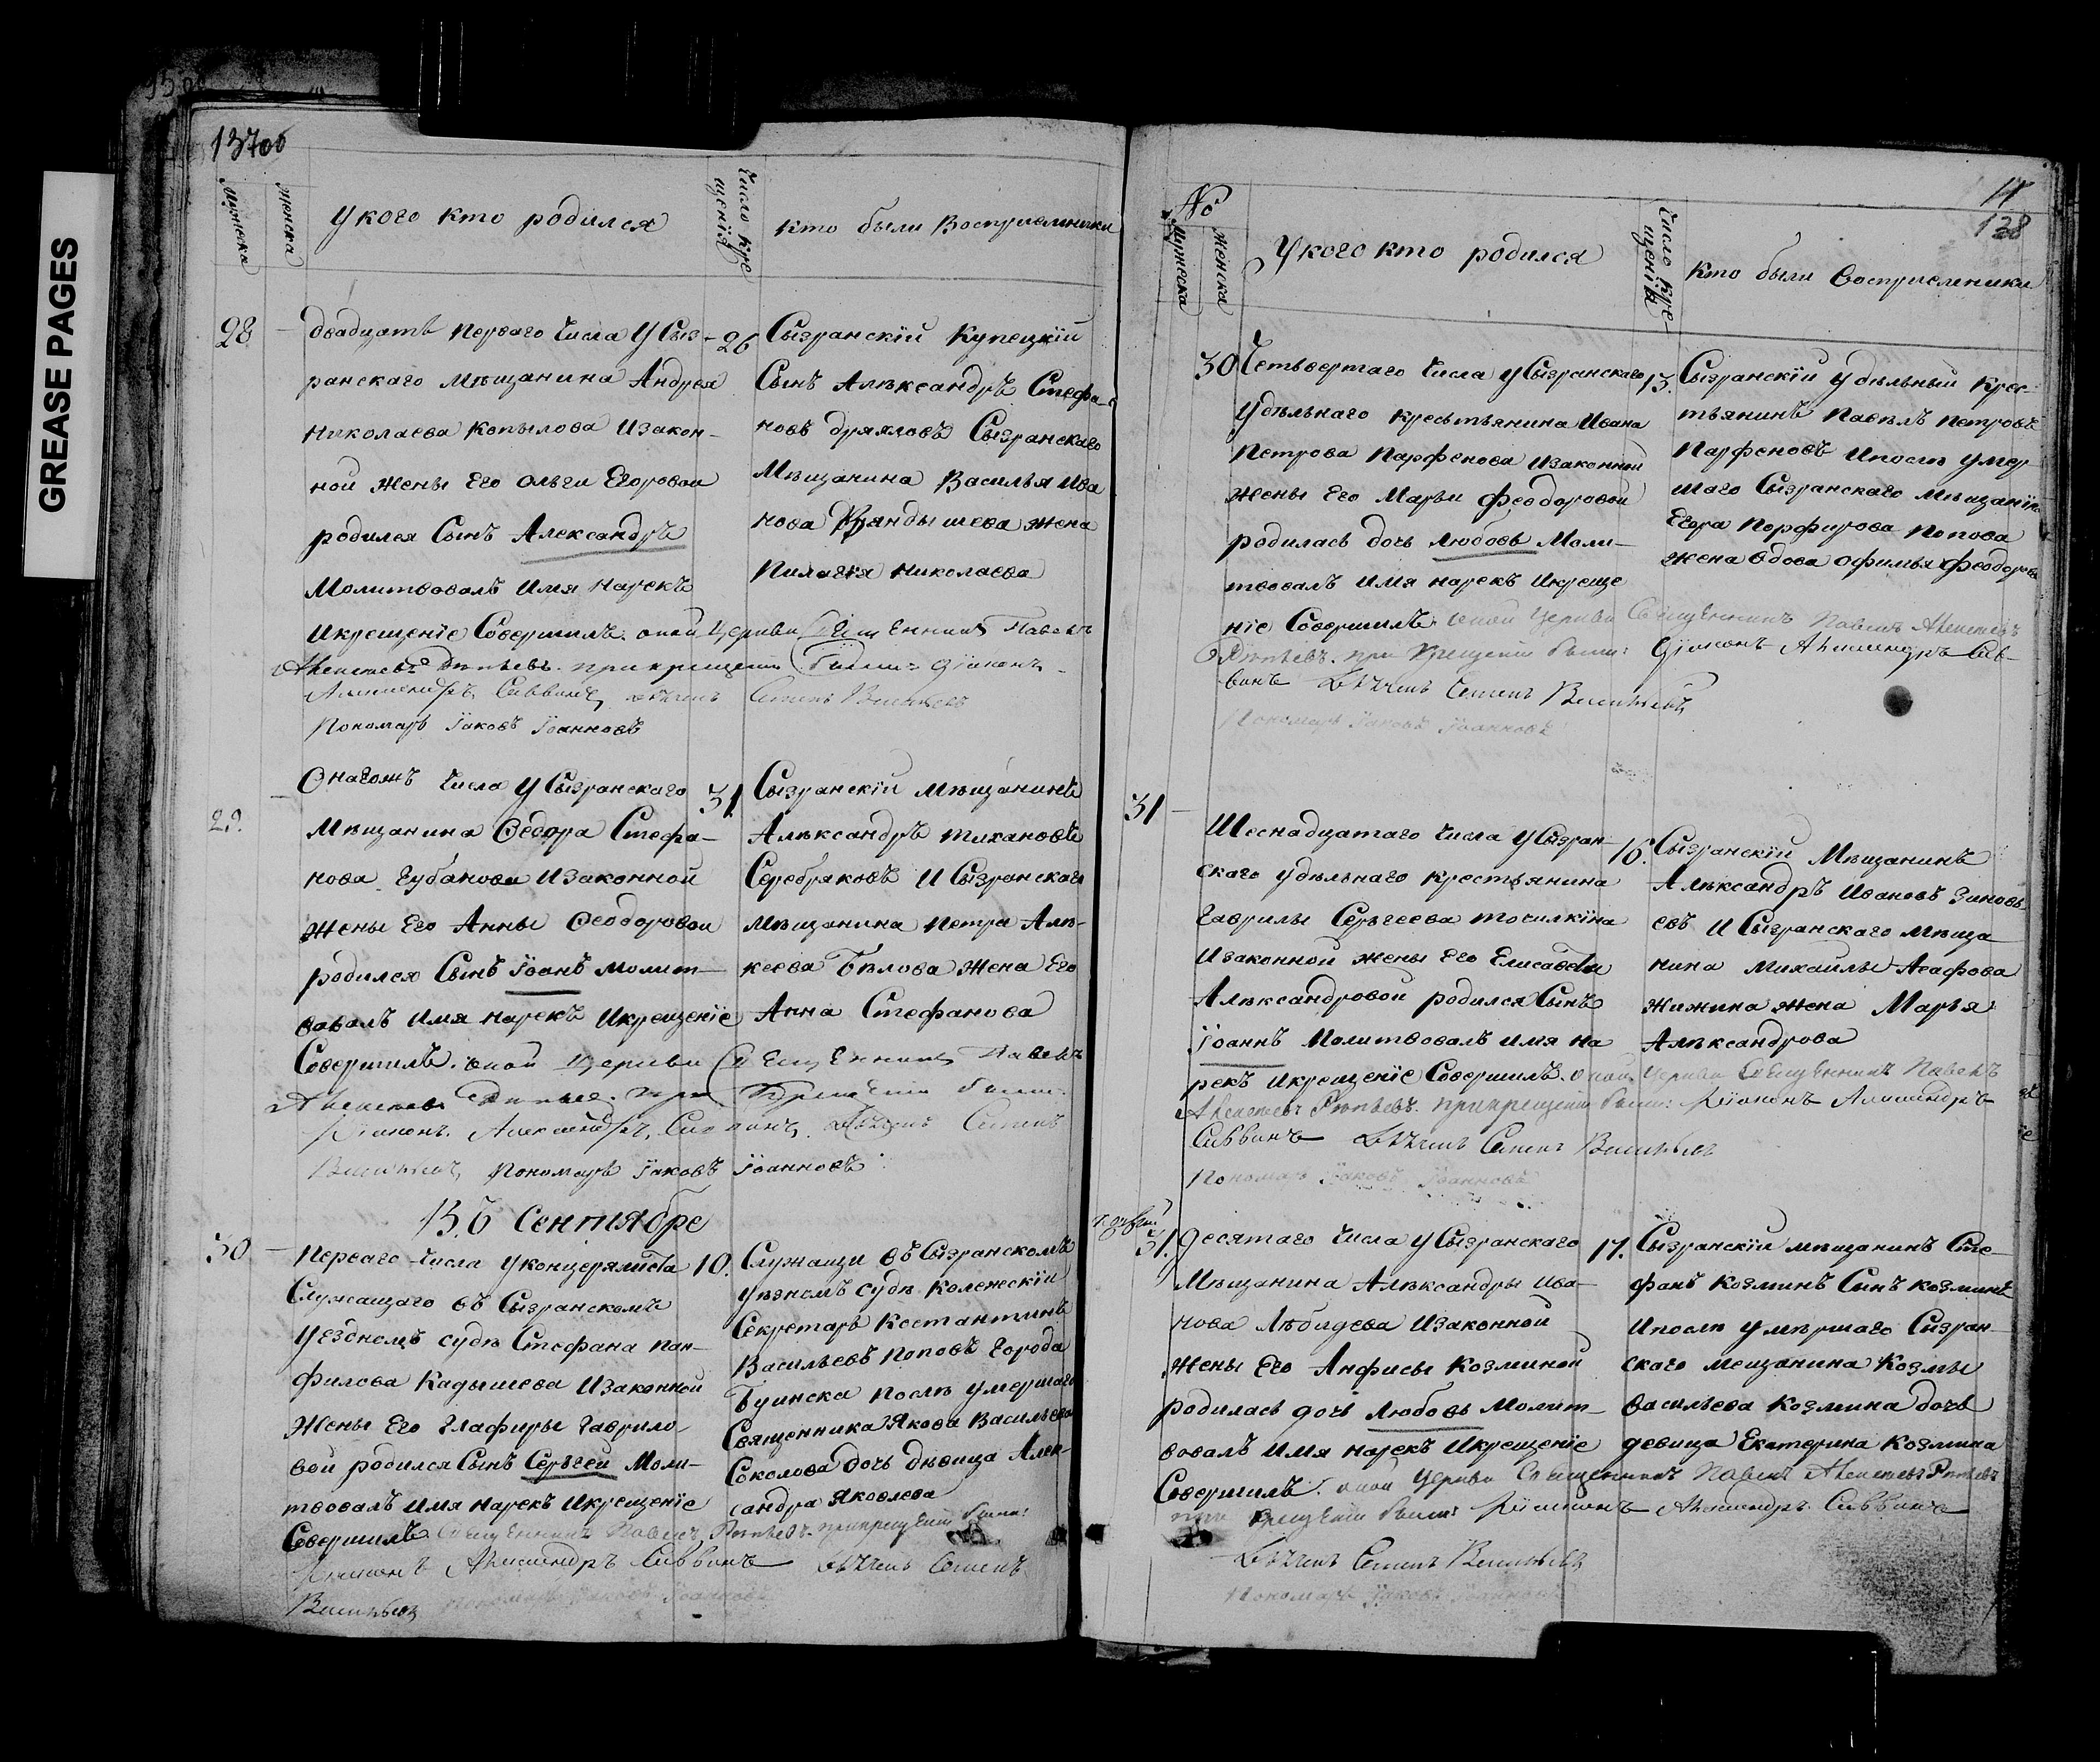 GREASE PAGES
137об
мужеска
женска
У кого кто родился
Число кре
щенія
кто были Восприемники
28
двадцать перваго числа У Сыз-
ранскаго мѣщанина Андрея
Николаева Копылова Изакон-
ной жены Его Ольги Егоровой
родился Сынъ Александръ
Молитвовалъ имя нарекъ
Икрещеніе Совершилъ. оной Церкви Священникъ Павелъ
при крещеніи были: діаконъ
Александръ Саввинъ Семенъ Васильевъ
Пономарь Іаковъ Іоанновъ
26
Сызранскій Купецкій
Сынъ Алѣксандръ Стефа-
новъ Сызранскаго
Мѣщанина Василья Ива
нова жена
Пилагея Николаева
29.
Онагомъ числа У Сызранскаго
Мѣщанина Ѳедора Стефа-
нова Губанова Изаконной
жены Его Анны Ѳеодоровой
родился Сынъ Іоанъ молит-
вовалъ имя нарекъ Икрещеніе
Совершилъ. оной Церкви Священникъ Павелъ
при Крещеніи были:
Діаконъ. Александръ Саввинъ Семенъ
Васильевъ Пономарь Іаковъ Іоанновъ
31.
Сызранскій мѣщанинъ
Алѣксандръ Тихановъ
Серебряковъ И Сызранскаго
мѣщанина Петра Алѣ-
ксева Бѣлова Жена Его
Анна Стефанова
Въ Сентябре
30
перваго числа У концеряли́ста
Служащаго въ Сызранскомъ
уездномъ судѣ Стефана пан-
филова Кадышева Изаконной
жены Его Глафиры Гаврило-
вой родился Сынъ Сергей Моли-
твовалъ имя нарекъ Икрещеніе
Совершилъ Священникъ Павелъ при крещеніи были:
Діаконъ Александръ Саввинъ Семенъ
Васильевъ Пономарь Іаковъ Іоанновъ
10.
Служащи въ Сызранскомъ
уѣзномъ судѣ Колежскій
Секретарь Костантинъ
Васильевъ Поповъ города
Буинска послѣ умершаго
Священника Якова Васильева
Соколова дочь дѣвица Алек-
сандра Яковлева
138
№
мужеска
женска
У кого кто родился
Число кре-
щенія
кто были Восприемники
30
Четвертаго числа У Сызранскаго
Удѣльнаго крестьянина Ивана
Петрова Парфенова Изаконной
жены Его Марьи Феодоровой
родилась дочь Любовь Моли-
твовалъ имя нарекъ Икреще
ніе Совершилъ. оной Церкви Священникъ Павелъ
при Крещеніи были: Діаконъ Александръ Сав-
винъ Семенъ Васильевъ
Пономарь Іаковъ Іоанновъ
13.
Сызранскій Удѣльный крес-
тьянинъ Павелъ Петровъ
Парфеновъ Ипослѣ умер
шаго Сызранскаго мѣщанина
Егора Порфирова Попова
жена вдова Офимья Феодорова
31
Шеснадцатаго числа У Сызран-
скаго удѣльнаго крестьянина
Гаврилы Сергеева Точилкина
Изаконной жены Его Елисаветы
Алѣксандровой родился Сынъ
Іоаннъ Молитвовалъ имя на
рекъ Икрещеніе Совершилъ. оной Церкви Священникъ Павелъ
при крещеніи были: Діаконъ Александръ
Саввинъ Семенъ Васильевъ
Пономарь Іаковъ Іоанновъ
16.
Сызранскій Мѣщанинъ
Алѣксандръ Ивановъ Зиновь-
евъ И Сызранскаго мѣща
нина Михайлы Агафова
Жижина жена Марья
Алѣксандрова
31.
десятаго числа У Сызранскаго
Мѣщанина Алѣксандры Ива-
нова Лѣбидева Изаконной
жены Его Анфисы Козминой
родилась дочь Любовь Молит-
вовалъ имя нарекъ Икрещеніе
Совершилъ. оной Церкви Священникъ Павелъ
при Крещеніи были: Діаконъ Александръ Саввинъ
Семенъ Васильевъ
Пономарь Іаковъ Іоанновъ
17.
Сызранскій мѣщанинъ Сте-
фанъ Козминъ Сынъ Козминъ
Ипослѣ умѣршаго Сызран-
скаго мещанина Козмы
Васильева Козмина дочь
девица Екатерина Козмина